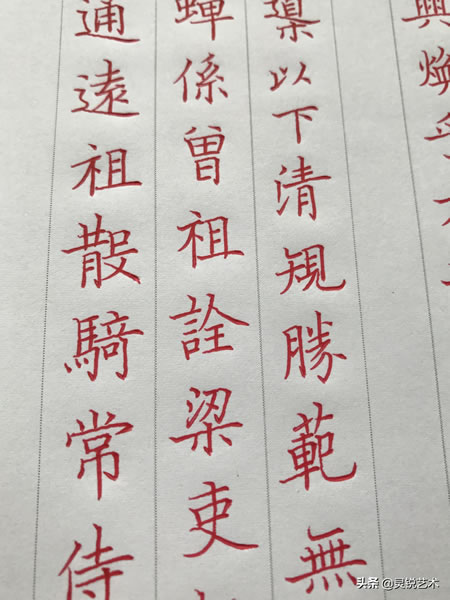 興煥
以下清規勝範無
蟬係曾祖詮梁吏
通遠祖散騎常侍
头条 @灵锐艺术